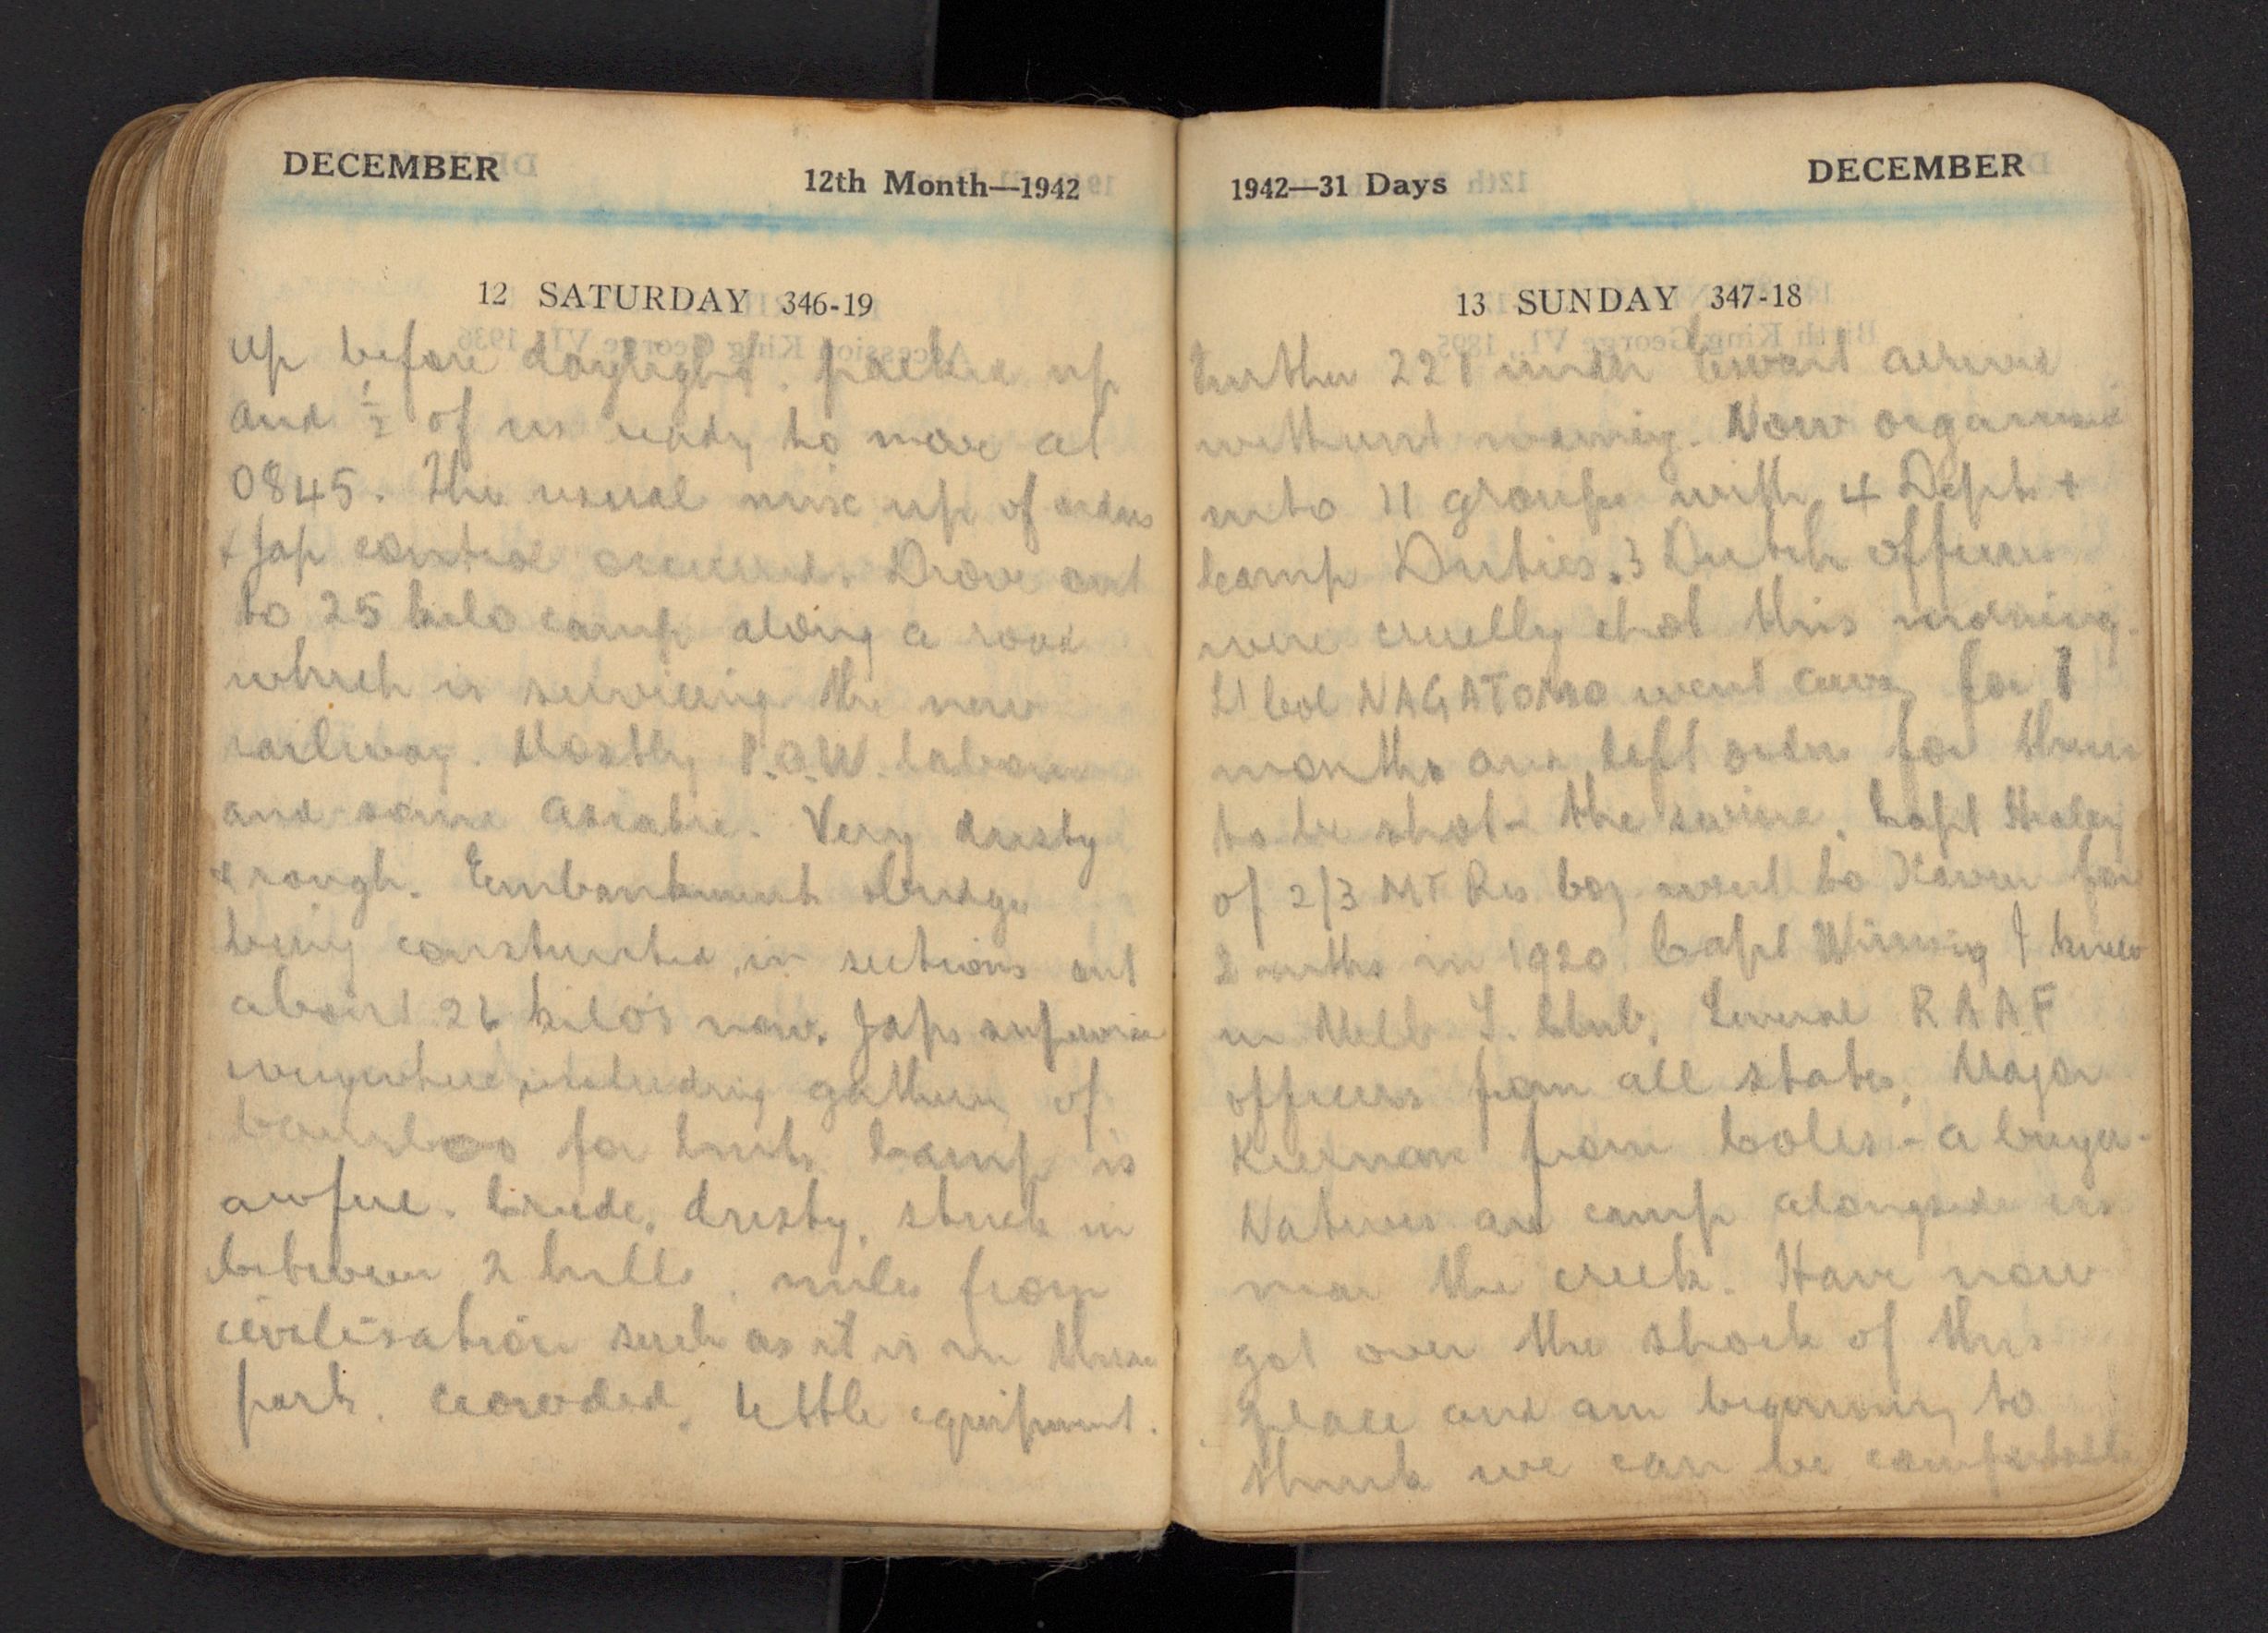 DECEMBER 12th Month—1942
12 SATURDAY 346-19
Accession King George VI, 1936
up before daylight. packed up
and ½ of us ready to move at
0845. The usual mix up of orders
& Jap control occurred. Drove out
to 25 kilo camp along a road
which is servicing the new
railway. Mostly P.O.W. labour
and some asiatic. Very dusty
& rough. Embankment bridge
being constructed, in sections out
about 26 kilos now. Japs supervise
everywhere, including gathering of
bamboo for huts. Camp is
awful. Crude, dusty, stuck in
between 2 hills, miles from
civilisation such as it is in these
parts. crowded, little equipment.
1942—31 Days DECEMBER
13 SUNDAY 347-18
Birth King George VI, 1895
Further 221 under arrived
without warning. Now organised
into 11 groups with 4 Depts +
Camp Duties. 3 Dutch officers
were cruelly shot this morning.
Lt Col NAGATOMO went away for
months and left orders for them
to be shot - the swine. Capt Healey
of 2/3 MT Res Coy went to for
2 mths in 1920. Capt I knew
in Melb Y. Club. Several RAAF
officers from all states. Major
Kiernan from Coles - a buyer.
Natives are camp alongside us
near the creek. Have now
got over the shock of this
place and am beginning to
think we can be comfortable